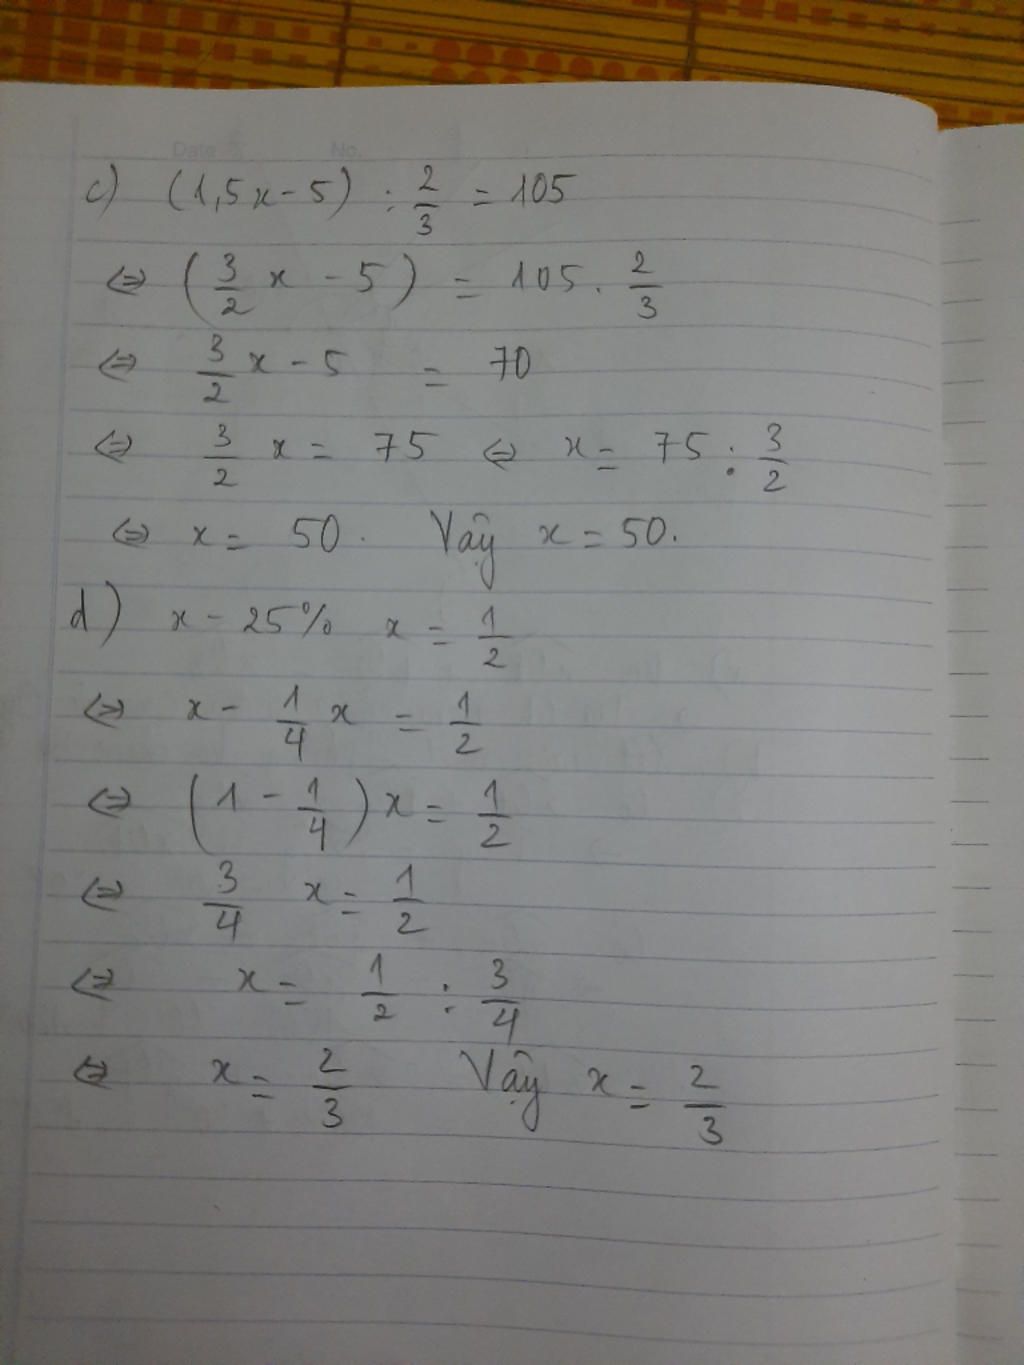 Date No.
c) (1,5x - 5) : 2/3 = 105
⇔ (3/2 x - 5) = 105 . 2/3
⇔ 3/2 x - 5 = 70
⇔ 3/2 x = 75 ⇔ x = 75 : 3/2
⇔ x = 50. Vậy x = 50.
d) x - 25% x = 1/2
⇔ x - 1/4 x = 1/2
⇔ (1 - 1/4) x = 1/2
⇔ 3/4 x = 1/2
⇔ x = 1/2 : 3/4
⇔ x = 2/3 Vậy x = 2/3